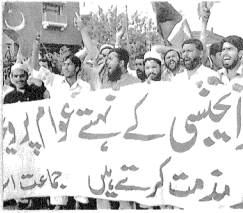 ایجنسی کے نہتے عوام پر
مذمت کرتے ہیں جماعت